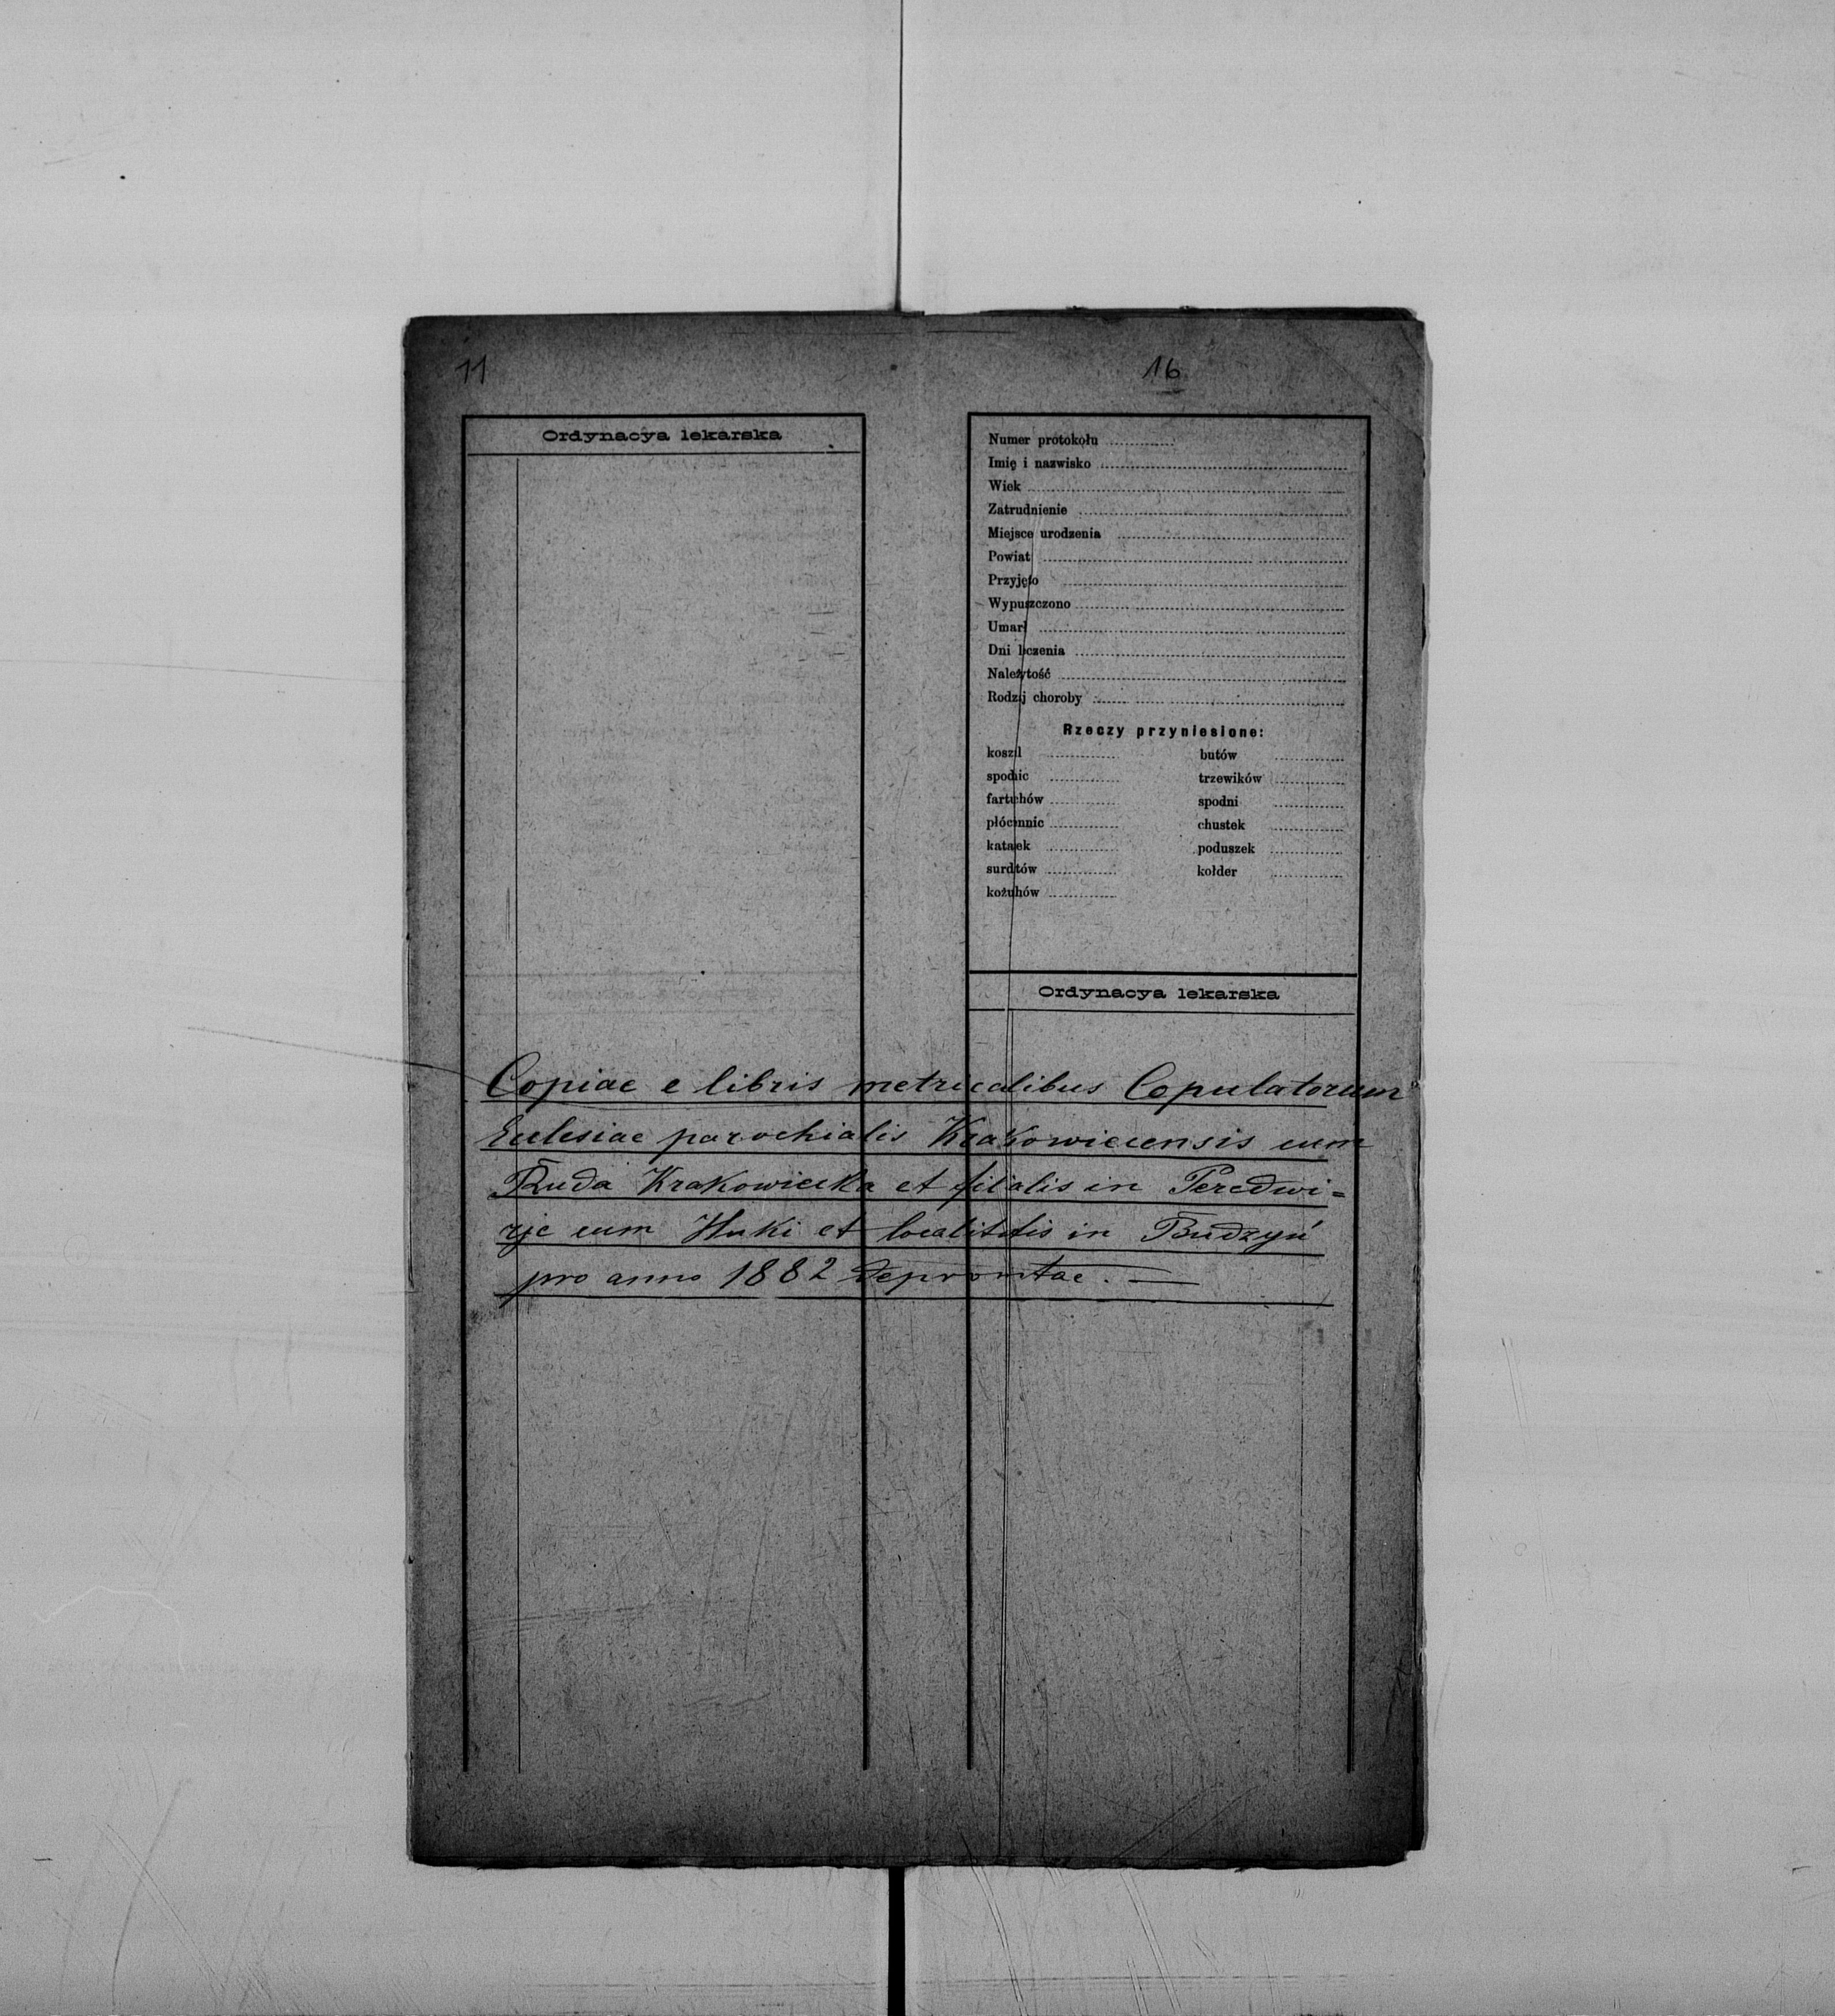 11
16
Ordynacya lekarska
Numer protokołu
Imię i nazwisko
Wiek
Zatrudnienie
Miejsce urodzenia
Powiat
Przyjęto
Wypuszczono
Umarł
Dni leczenia
Należytość
Rodzaj choroby
Rzeczy przyniesione:
koszil butów
spodnic trzewików
fartuchów spodni
płócennic chustek
katanek poduszek
surdutów kołder
kożuhów
Ordynacya lekarska
Copiae e libris metricalibus Copulatorum
Ecclesiae parochialis Krakowiecensis cum
Ruda Krakowiecka et filialis in Peredwi=
rje cum Huki et localitatis in Budzyń
pro anno 1882 depromtae. —